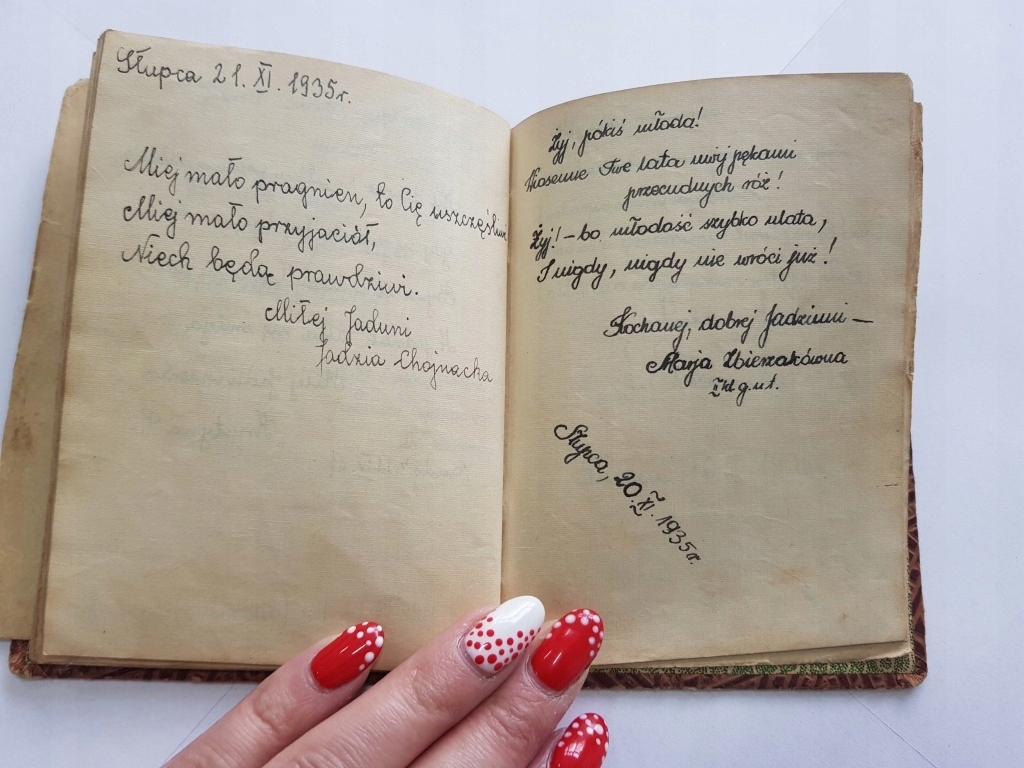 Słupca 21. XI. 1935r.
Miej mało pragnien, to Cię uszczęśliwi
Miej mało przyjaciół,
Niech będą prawdziwi.
Miłej Jaduni
Jadzia Chojnacka
Żyj, pókiś młoda!
Wiosenne Twe lata uwij pękami
przecudnych róż!
Żyj! – bo młodość szybko ulata,
I nigdy, nigdy nie wróci już!
Kochanej, dobrej Jadziuni –
Marja
kl. g. u t.
Słupca, 20. XI. 1935r.